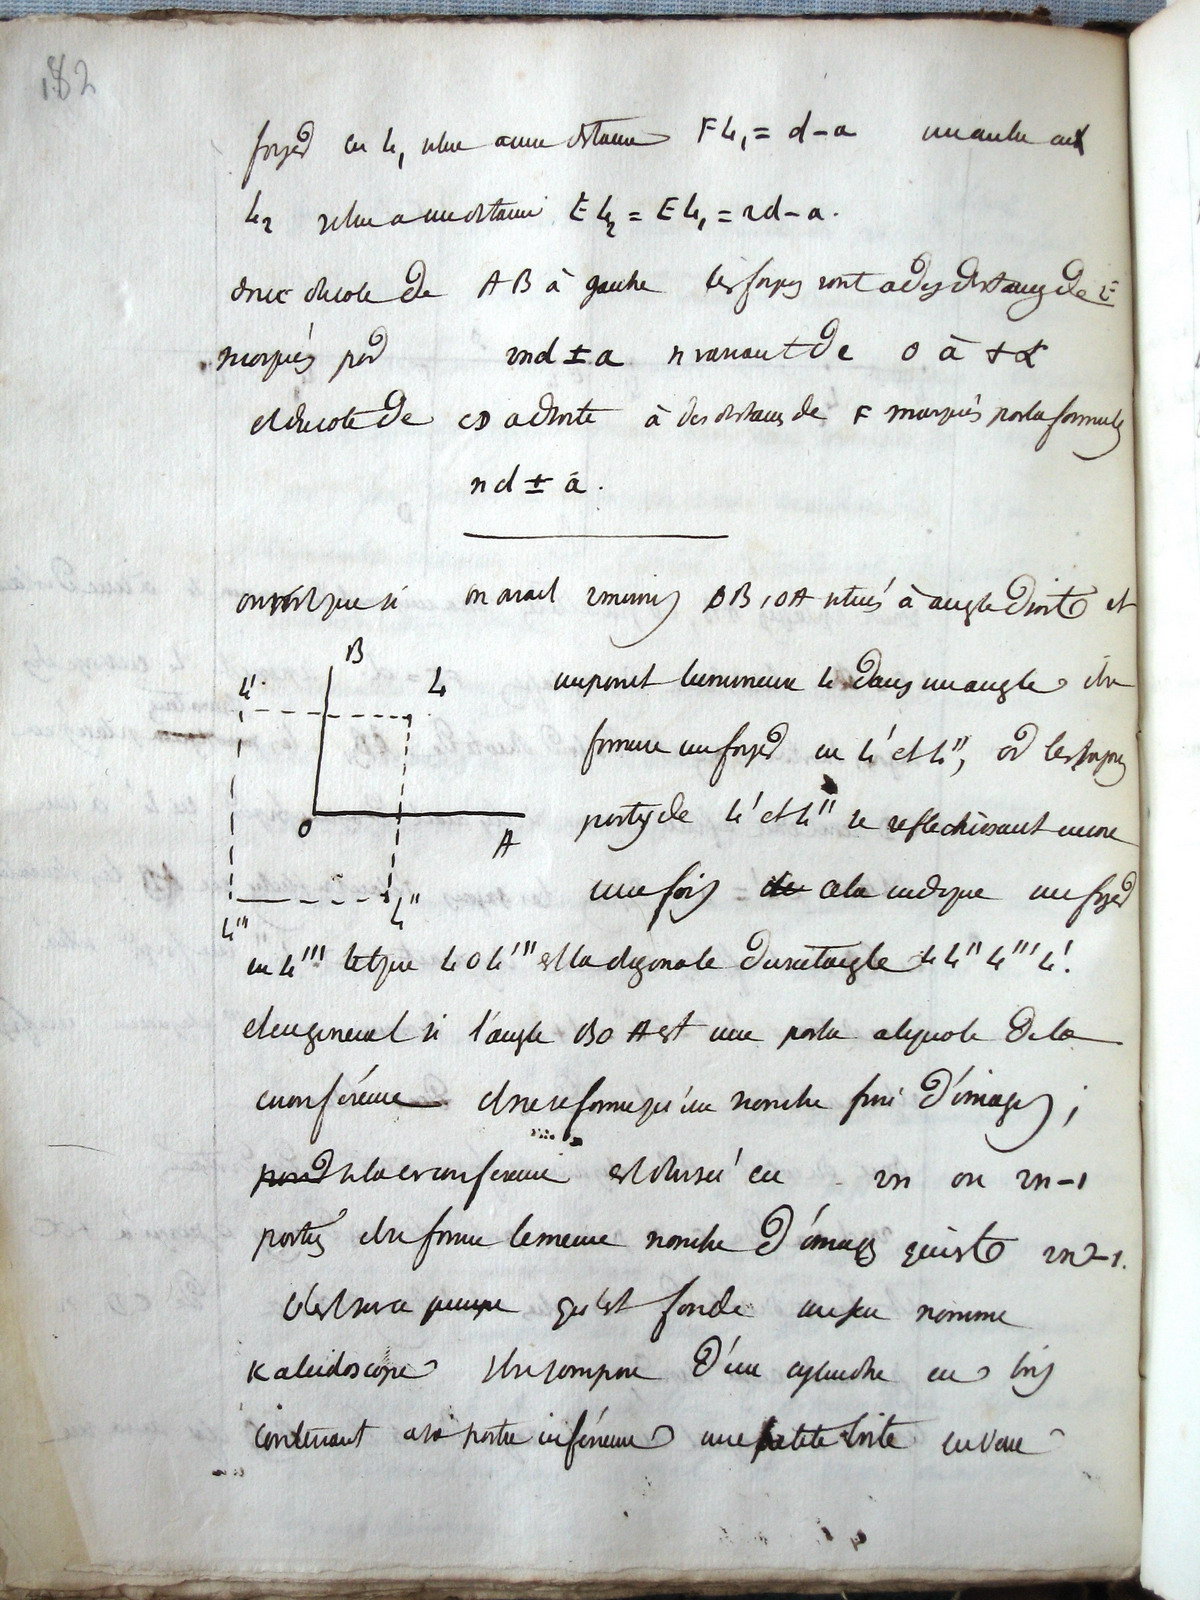 182
foyer en L, situe a une distance FL, = d-a un autre en
L2 situe a une distance EL2 = EL, = 2d-a.
donc du coté de AB à gauche les foyers sont a des distances de E
marqués par 2nd ± a n variant de 0 à +∝
et du coté de CD a droite à des distances de F marqués par la formule
nd ± a.
on voit que si on avait 2 miroirs OB, OA situés à angle droit et
B
L'
L
un point lumineux L dans un angle il se
formera un foyer en L' et L'', or les rayons
O
A
partis de L' et L'' se reflechissant encore
une fois cela indique un foyer
L'''
L''
en L''' tel que LOL''' est la diagonale du rectangle LL''L'''L'.
et en general si l'angle BOA est une partie aliquote de la
circonférence il ne se forme qu'un nombre fini d'images;
si la circonference est divisé en 2n ou 2n-1
parties il se forme le meme nombre d'images qui est 2n-1.
C'est sur ce principe qu'est fondé un jeu nommé
Kaleidoscope il se compose d'un cylindre en bois
contenant a sa partie inférieure une petite boite en verre